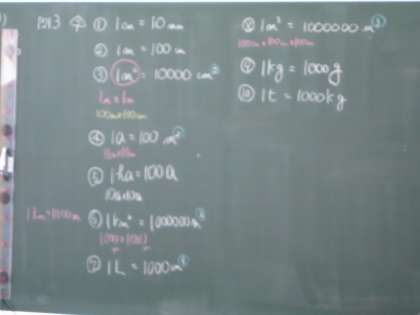 ① 1cm = 10mm
② 1m = 100cm
③ 1m² = 10000 cm²
1m×1m
100cm×100cm
④ 1a = 100 m²
10m×10m
⑤ 1ha = 100a
1km=1000m
⑥ 1km² = 1000000m²
⑦ 1L = 1000cm³
⑧ 1m³ = 1000000cm³
100cm×100cm×100cm
⑨ 1kg = 1000g
⑩ 1t = 1000kg